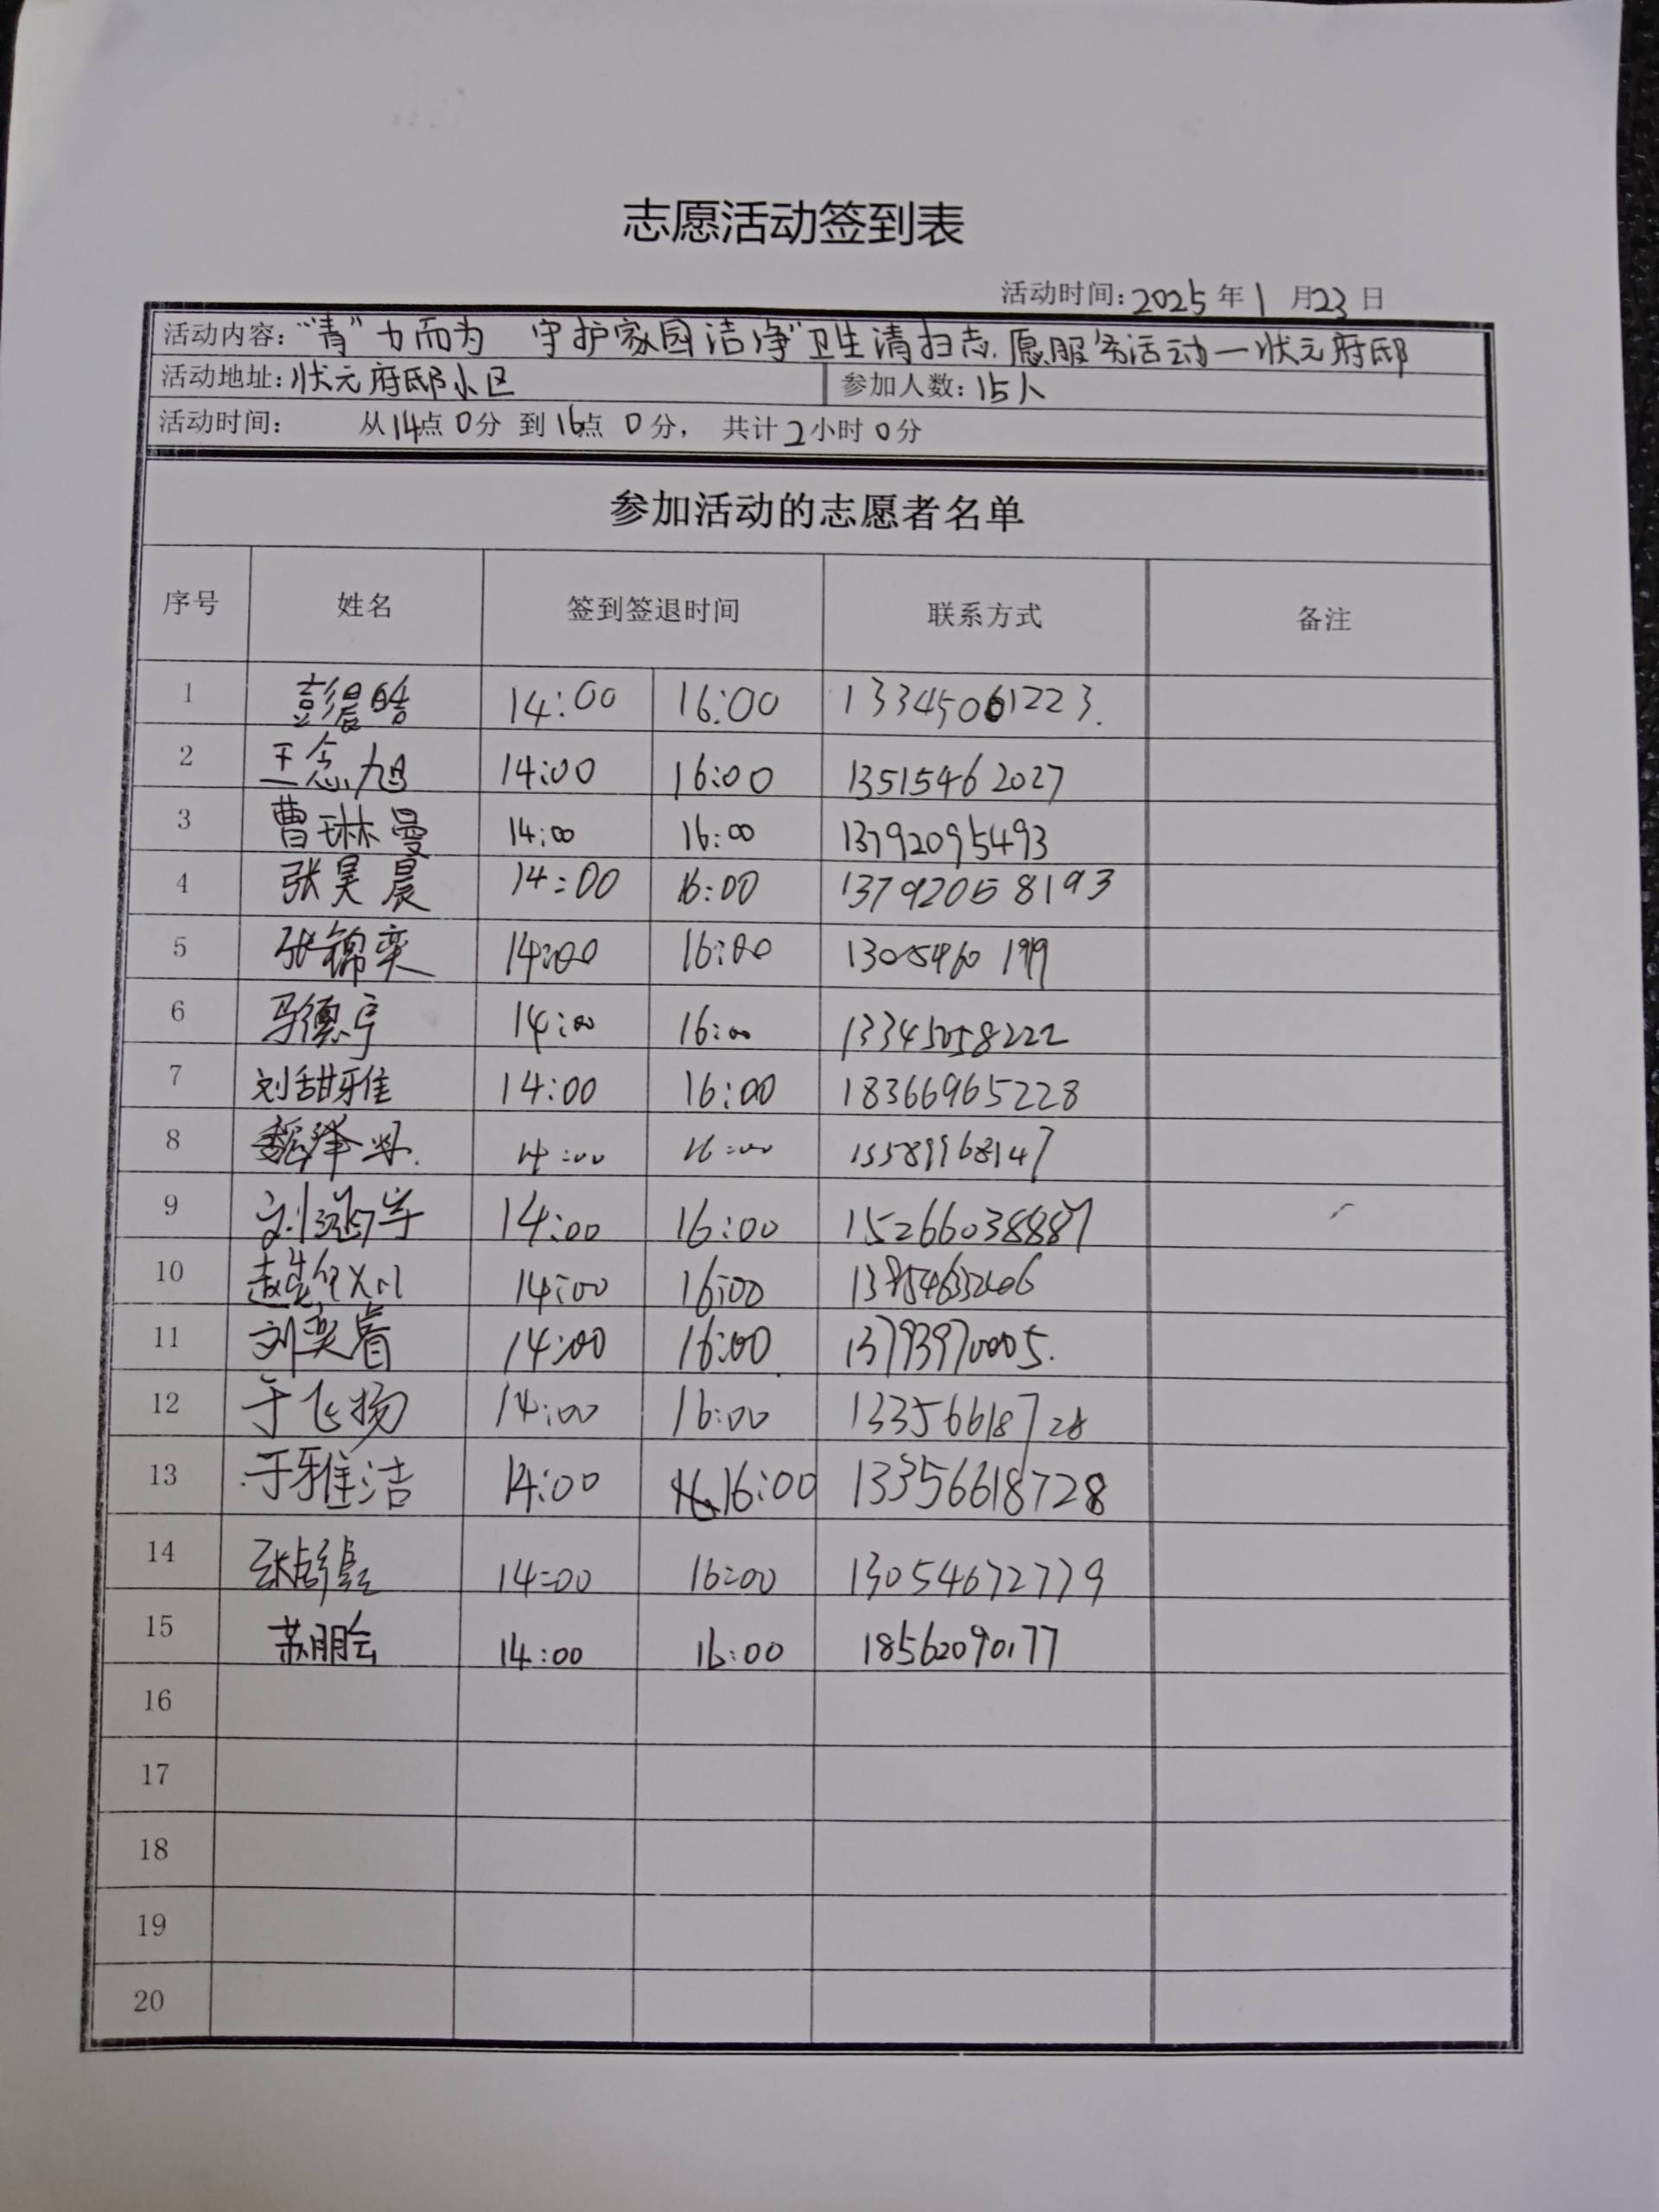 志愿活动签到表
活动时间：2025年1月23日
活动内容：“青”力而为 守护家园洁净”卫生清扫志愿服务活动—状元府邸
活动地址：状元府邸小区 参加人数：15人
活动时间： 从14点0分 到16点0分， 共计2小时0分
参加活动的志愿者名单
序号 姓名 签到签退时间 联系方式 备注
1 彭晨皓 14:00 16:00 13345061223.
2 王念旭 14:00 16:00 13515462027
3 曹琳曼 14:00 16:00 13792095493
4 张昊晨 14:00 16:00 13792058193
5 张锦奕 14:00 16:00
6 马德宁 14:00 16:00 13345058222
7 刘甜雅 14:00 16:00 18366965228
8 14:00 16:00 15589968147
9 14:00 16:00 15266038887
10 14:00 16:00
11 刘奕睿 14:00 16:00 13793970005.
12 于飞扬 14:00 16:00 13356618728
13 于雅洁 14:00 16:00 13356618728
14 14:00 16:00 13054672779
15 苏朋会 14:00 16:00 18562090177
16
17
18
19
20